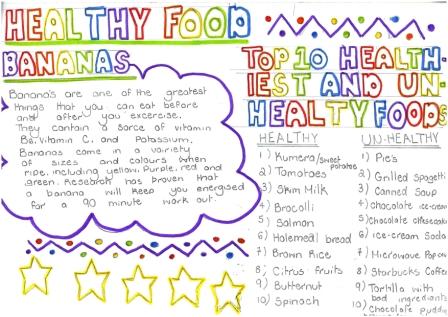 HEALTHY FOOD
BANANAS
Banana's are one of the greatest
things that you can eat before
and after you excercise.
They contain a sorce of vitamin
B6, Vitamin C, and Potassium,
Bananas come in a variety
of sizes and colours when
ripe, including yellow, Purple, red and
green. Research has proven that
a banana will keep you energised
for a 90 minute work out
TOP 10 HEALTH-
IEST AND UN-
HEALTY FOODS
HEALTHY
1) Kumera/sweet potatoes
2) Tomatoes
3) Skim Milk
4) Brocolli
5) Salmon
6) Halemeal bread
7) Brown Rice
8) Citrus fruits
9) Butternut
10) Spinach
UN-HEALTHY
1) Pie's
2) Grilled Spagetti
3) Canned Soup
4) Chocolate ice-cream
5) Chocolate cheesecake
6) ice-cream Soda
7) Microwave Popcorn
8) Starbucks Coffee
9) Tortilla with
bad ingredients
10) Chocolate pudding